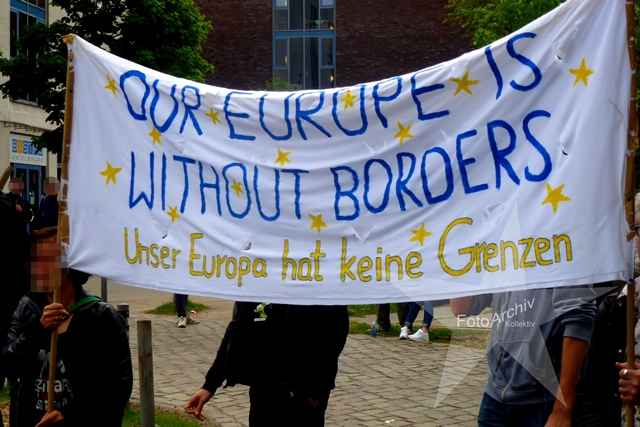 OUR EUROPE IS
WITHOUT BORDERS
Unser Europa hat keine Grenzen
FotoArchiv
Kollektiv